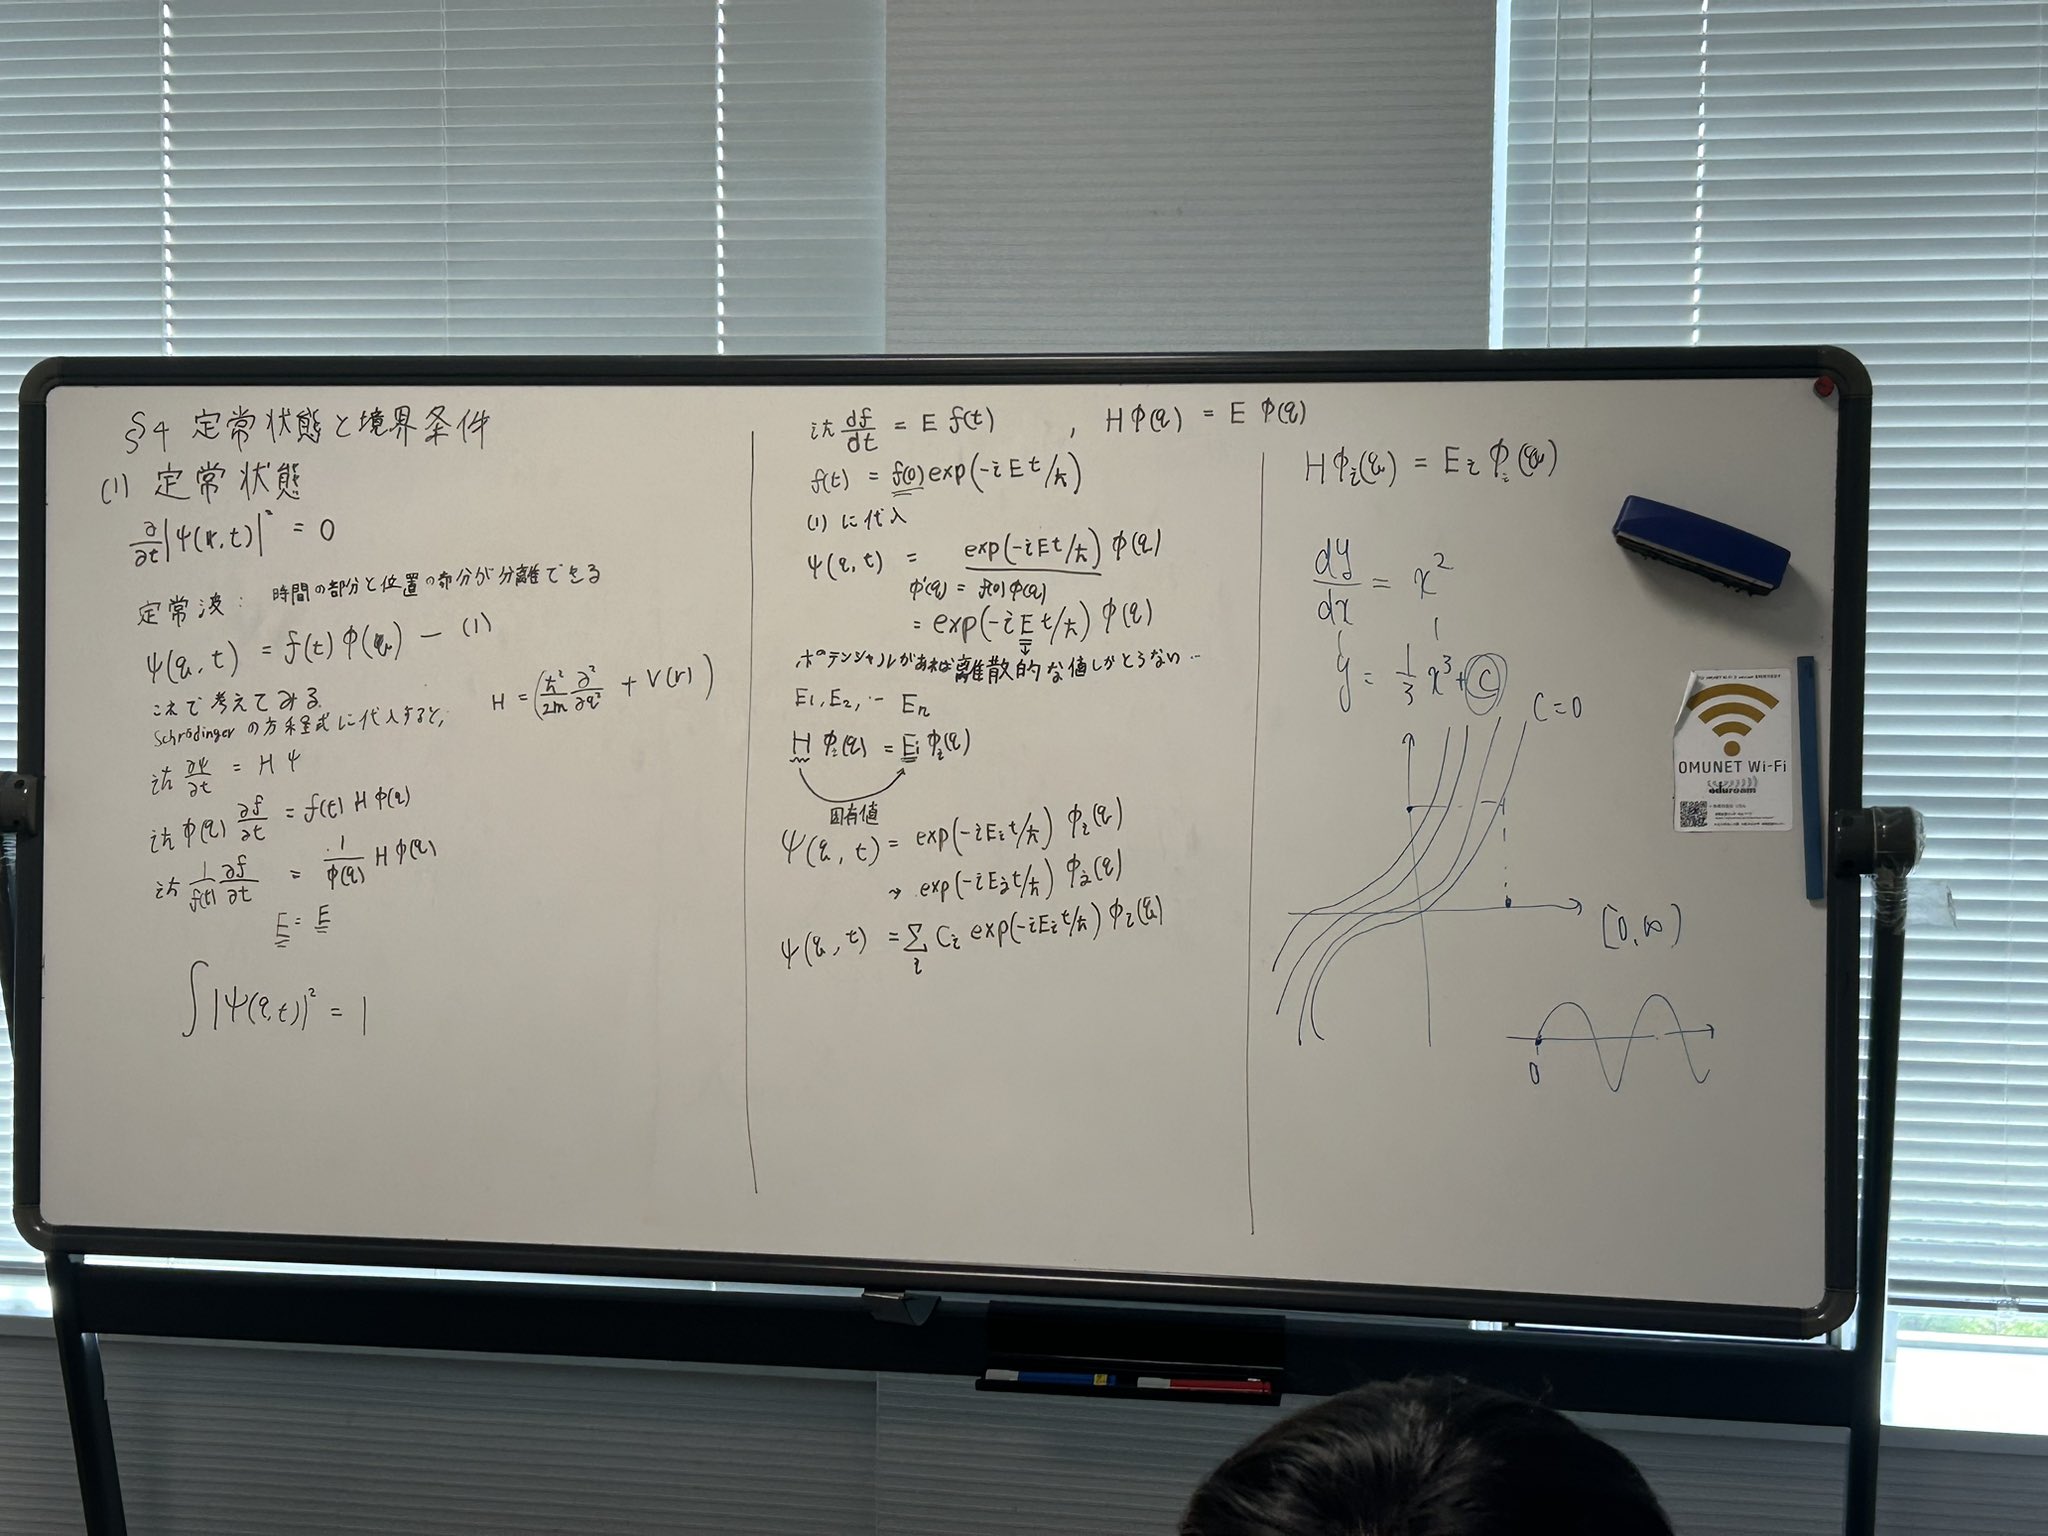 §4 定常状態と境界条件
(1) 定常状態
∂/∂t |ψ(r,t)|² = 0
定常波: 時間の部分と位置の部分が分離できる
ψ(q,t) = f(t) φ(q) — (1)
これで考えてみる
Schrödingerの方程式に代入すると,
H = (ħ²/2m ∂²/∂q² + V(r))
iħ ∂ψ/∂t = Hψ
iħ φ(q) ∂f/∂t = f(t) H φ(q)
iħ 1/f(t) ∂f/∂t = 1/φ(q) H φ(q)
E = E
∫|ψ(q,t)|² = 1
iħ df/dt = E f(t) , Hφ(q) = E φ(q)
f(t) = f(0) exp(-iEt/ħ)
(1) に代入
ψ(q,t) = exp(-iEt/ħ) φ(q)
φ'(q) = f(0) φ(q)
= exp(-iEt/ħ) φ(q)
ポテンシャルがあれば離散的な値しかとらない…
E1, E2, … En
H φi(q) = Ei φi(q)
固有値
ψ(q,t) = exp(-iEit/ħ) φi(q)
→ exp(-iE2t/ħ) φ2(q)
ψ(q,t) = Σi Ci exp(-iEit/ħ) φi(q)
Hφi(q) = Ei φi(q)
dy/dx = x²
y = 1/3 x³ + C
C=0
[0,∞)
0
OMUNET Wi-Fi
eduroam